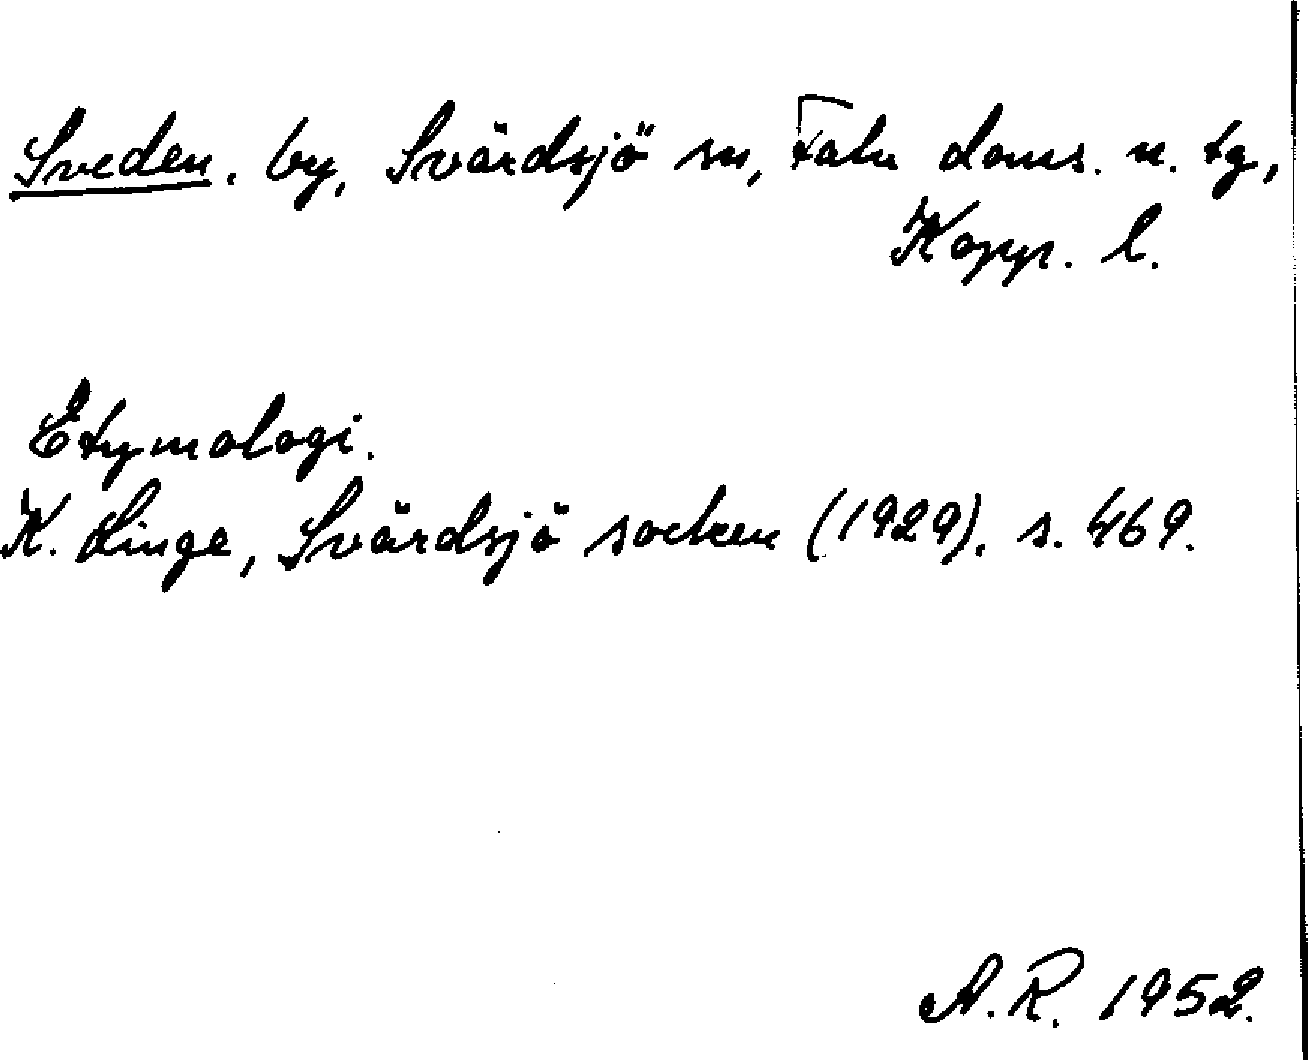 Sveden, by, Svärdsjö sn, Falu doms. n. tg,
Kopp. l.
Etymologi.
K. Linge, Svärdsjö socken (1929), s. 469.
A.R. 1952.